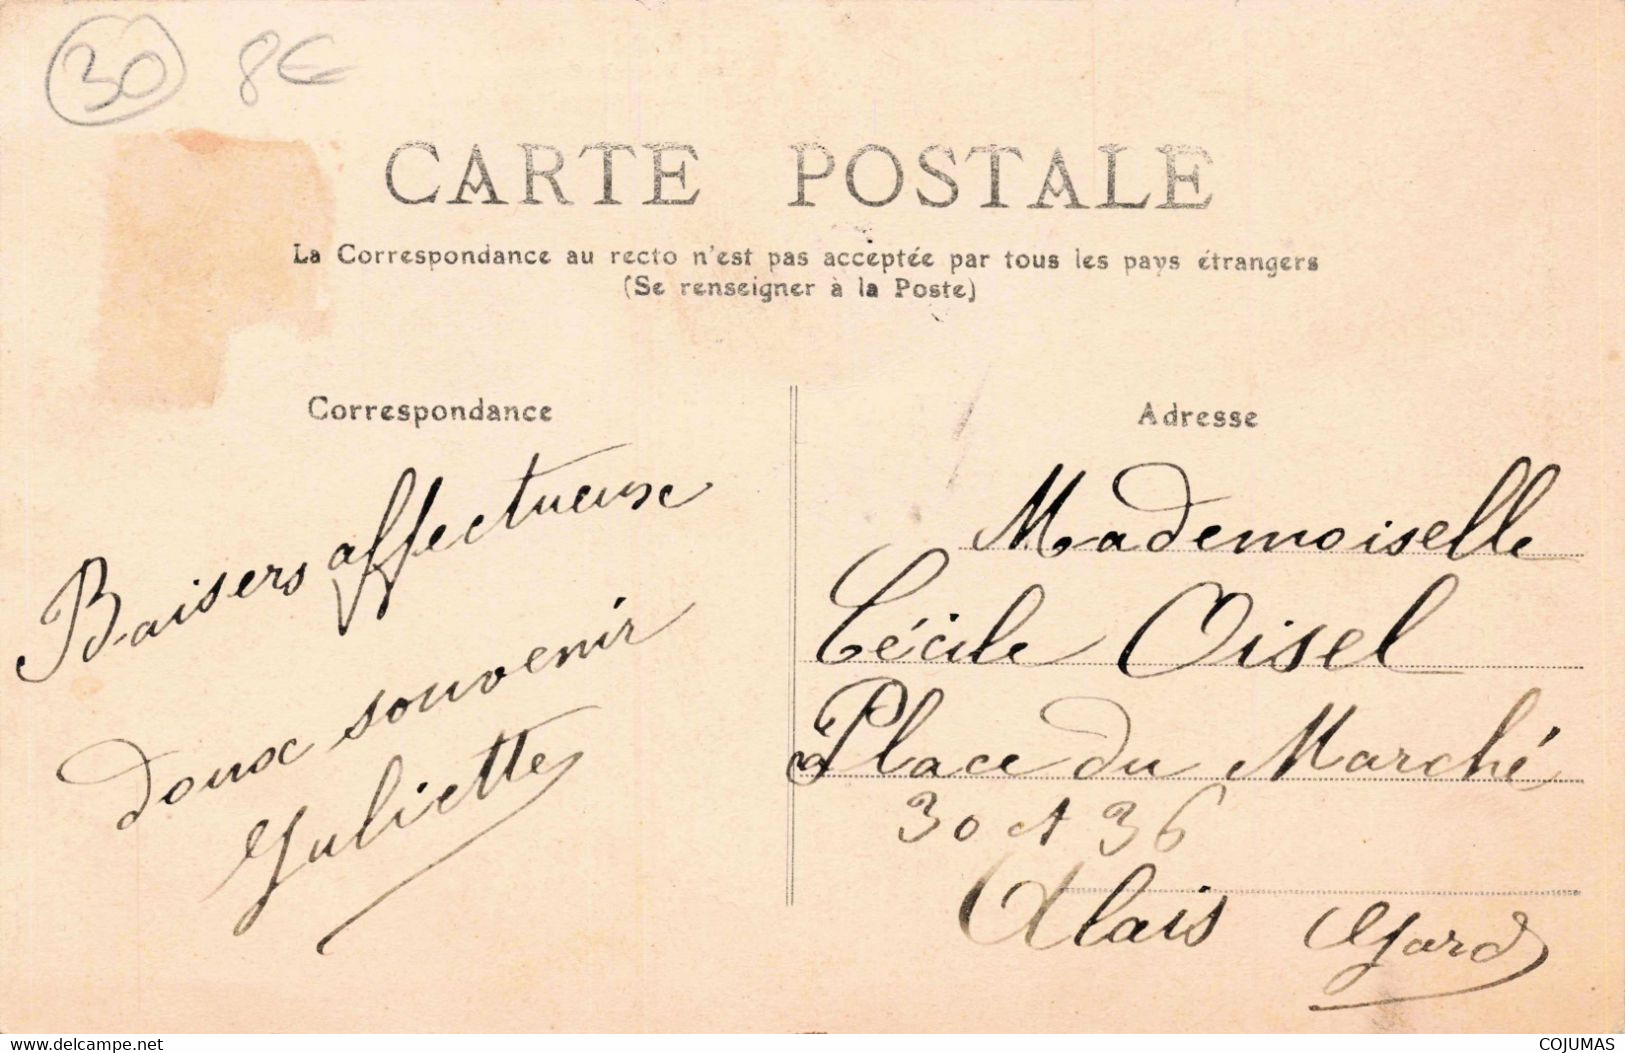 30 8€
CARTE POSTALE
La Correspondance au recto n'est pas acceptée par tous les pays étrangers
(Se renseigner à la Poste)
Correspondance
Baisers affectueux
doux souvenir
Juliette
Adresse
Mademoiselle
Cécile Oisel
Place du Marché
30 et 36
Alais Gard
www.delcampe.net
COJUMAS